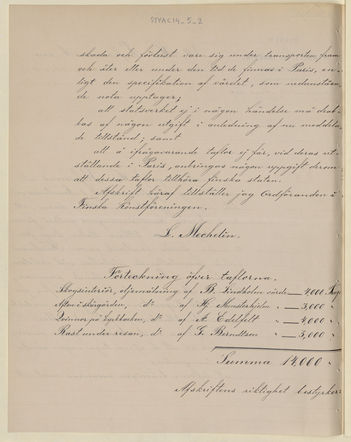 SIYAC14_5_2
skada och förlust vare sig under transporten fram
och åter eller under den tid de finnas i Paris, en-
ligt den specifikation af värdet, som nedanståen-
de nota upptager;
att statsverket ej i någon händelse må drab-
bas af någon utgift i anledning af nu meddela-
de tillstånd; samt
att å ifrågavarande taflor ej får, vid deras ut-
ställande i Paris, anbringas någon uppgift derom
att dessa taflor tillhöra finska staten.
Afskrift häraf tillställer jag Ordföranden i
Finska Konstföreningen.
L. Mechelin.
Förteckning öfver taflorna.
Skogsinteriör, oljemålning af B. Lindholm värde 4,000
Afton i skärgården, d:o af Hj. Munsterhjelm " 3,000 "
Qvinnor på kyrkbacken, d:o af A. Edelfelt " 4,000 "
Rast under resan, d:o af G. Berndtson " 3,000 "
Summa 14,000 "
Afskriftens riktighet bestyrker: